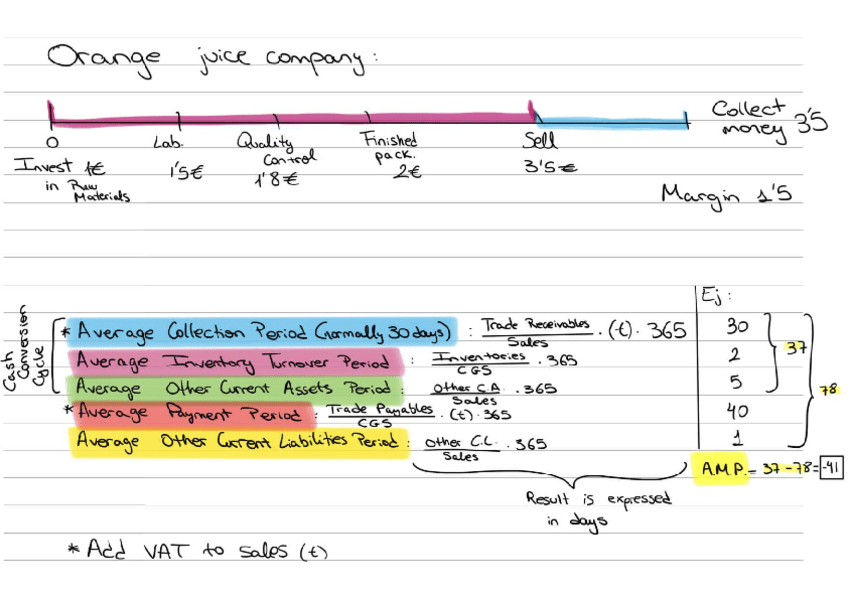 Orange juice company:
0
Lab.
Quality Control
Finished pack.
Sell
Collect money 3'5
Invest 1€ in Raw Materials
1'5€
1'8€
2€
3'5€
Margin 1'5
Ej:
Cash Conversion Cycle
* Average Collection Period (normally 30 days) : Trade Receivables / Sales . (t) . 365 30
Average Inventory Turnover Period : Inventories / CGS . 365 2
Average Other Current Assets Period : Other C.A. / Sales . 365 5
37
* Average Payment Period : Trade Payables / CGS . (t) . 365 40
Average Other Current Liabilities Period : Other C.L. / Sales . 365 1
78
A.M.P. = 37 - 78 = -41
Result is expressed
in days
* Add VAT to sales (t)